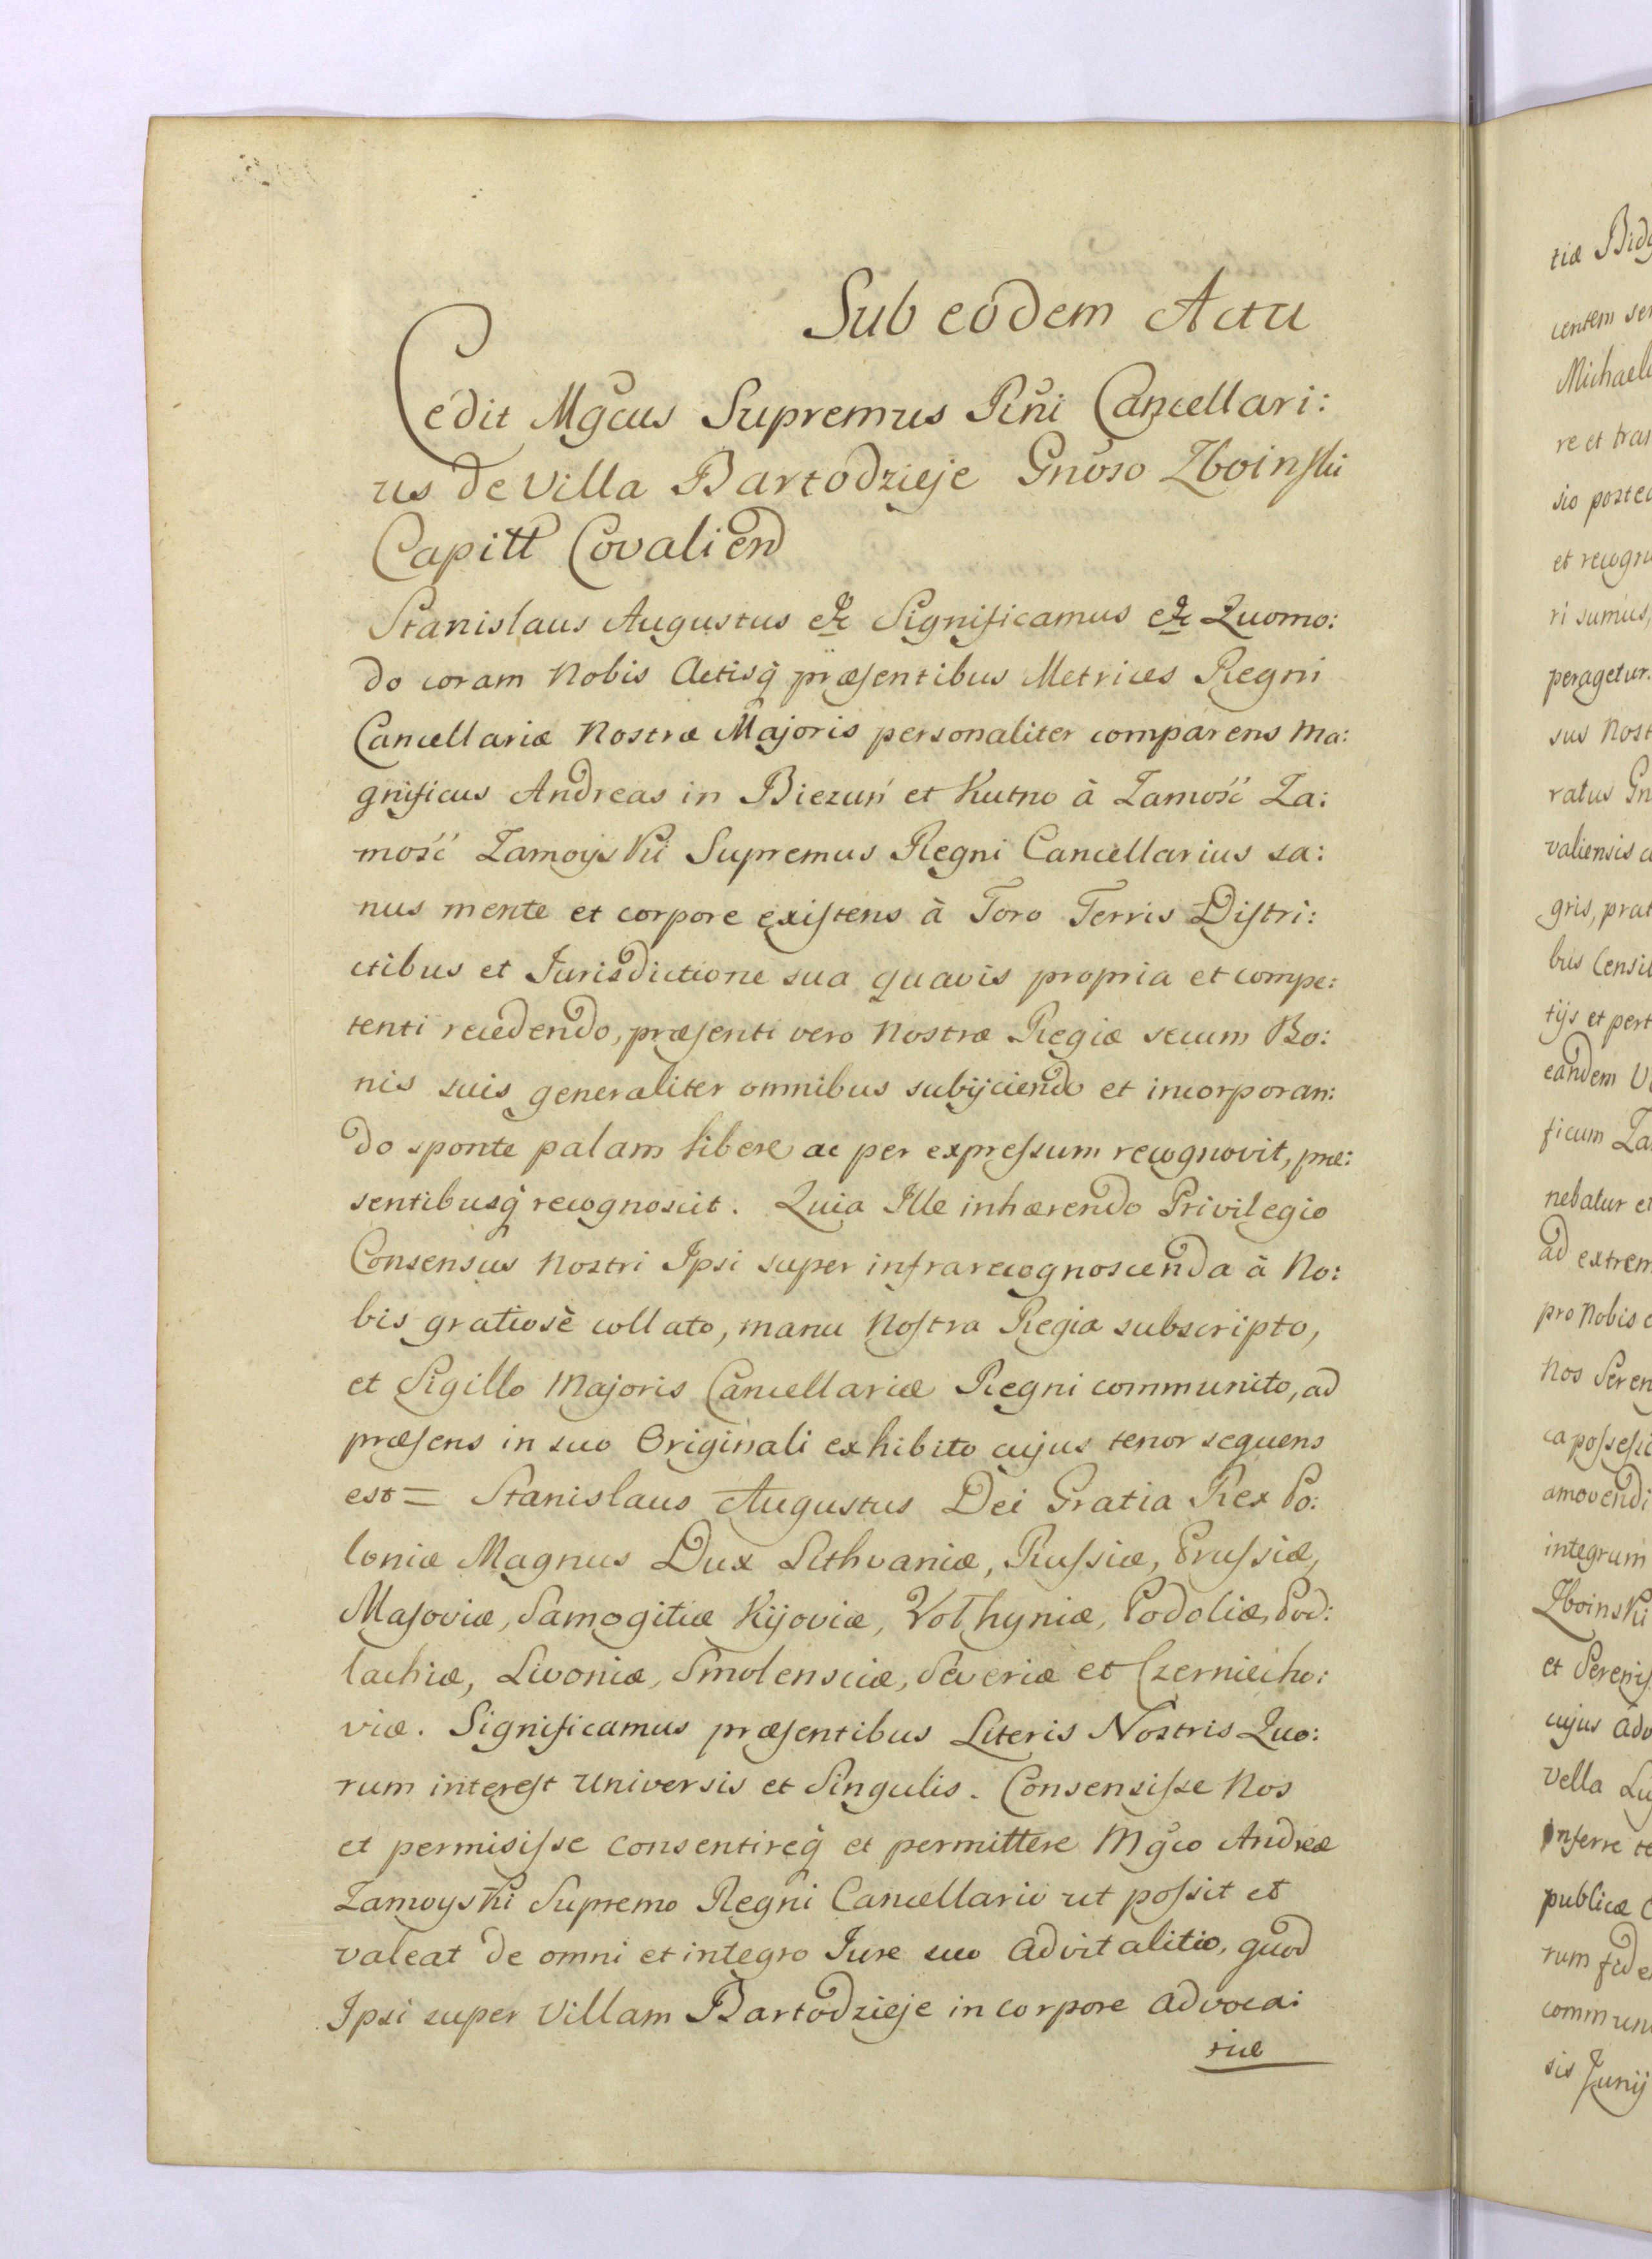 Sub eodem Actu
Cedit Mgcus Supremus Rni Cancellari:
us de Villa Bartodzieje Gnoso Zboinski
Capitt Covalien
Stanislaus Augustus &c Significamus &c Quomo:
do coram Nobis Actisq præsentibus Metrices Regni
Cancellariæ Nostræ Majoris personaliter comparens Ma:
gnificus Andreas in Biezuń et Kutno à Zamość Za:
mość Zamoyski Supremus Regni Cancellarius sa:
nus mente et corpore existens à Foro Terris Distri:
ctibus et Jurisdictione sua quavis propria et compe:
tenti recedendo, præsenti vero Nostræ Regiæ secum Bo:
nis suis generaliter omnibus subijciendo et incorporan:
do sponte palam libere ac per expressum recognovit, præ:
sentibusq recognoscit. Quia Ille inhærendo Privilegio
Consensus Nostri Ipsi super infrarecognoscenda à No:
bis gratiosè collato, manu Nostra Regia subscripto,
et Sigillo Majoris Cancellariæ Regni communito, ad
præsens in suo Originali exhibito cujus tenor sequens
est = Stanislaus Augustus Dei Gratia Rex Po:
loniæ Magnus Dux Lithvaniæ, Russiæ, Prussiæ,
Masoviæ, Samogitiæ Kijoviæ, Volhyniæ, Podoliæ, Pod:
lachiæ, Livoniæ, Smolensciæ, Severiæ et Czerniecho:
viæ. Significamus præsentibus Literis Nostris Quo:
rum interest Universis et Singulis. Consensisse Nos
et permisisse consentireq et permittere Mgco Andreæ
Zamoyski Supremo Regni Cancellario ut possit et
valeat de omni et integro Jure suo advitalitio, quod
Ipsi super Villam Bartodzieje in corpore advoca:
tiæ
tiæ
centem
re et
sio
et
ri sumus,
peragetur.
sus
ratus
valiensis
gris,
bus
tijs et
eandem
ficum
nebatur
ad
pro Nobis
Nos
ca
amovendi
integrum
Zboinski
et
cujus
Vella
inferre
publicæ
rum
sis Junij